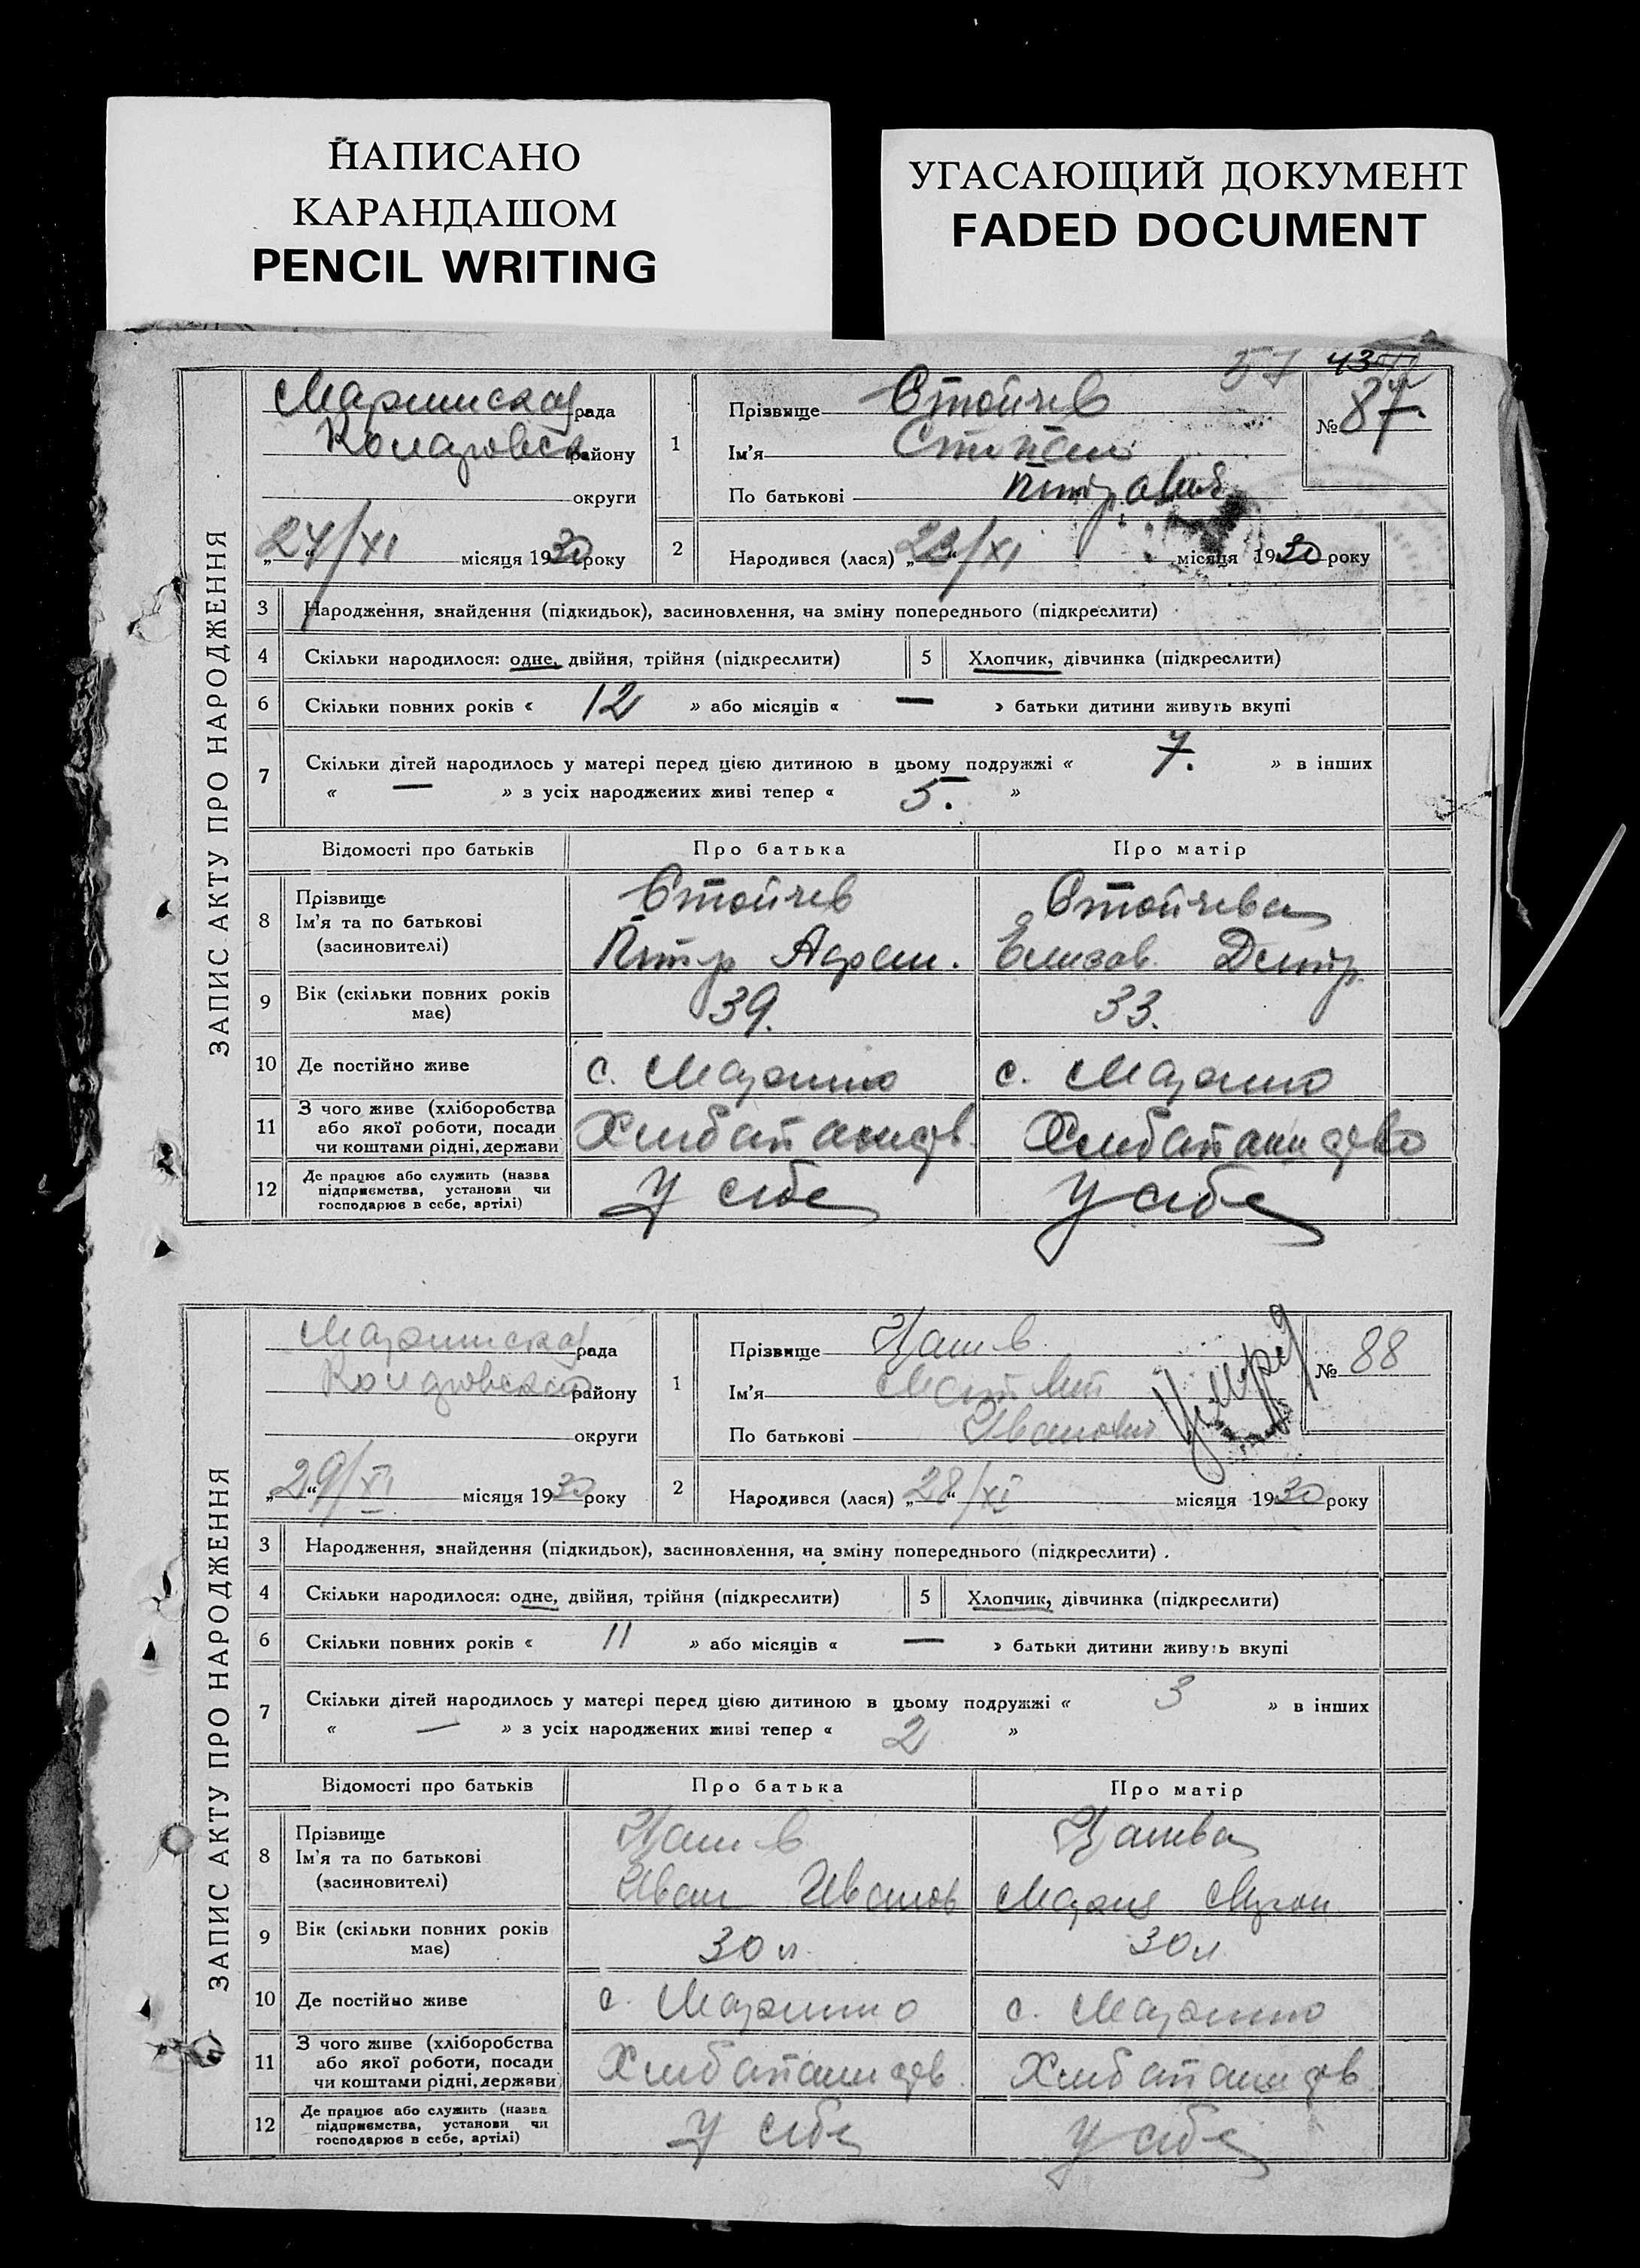 НАПИСАНО
КАРАНДАШОМ
PENCIL WRITING
УГАСАЮЩИЙ ДОКУМЕНТ
FADED DOCUMENT
57 43
ЗАПИС АКТУ ПРО НАРОДЖЕННЯ
рада
району
округи
„24/XI місяця 1930 року
1
Прізвище Стойчев
Ім'я Степан
По батькові
№ 87.
2 Народився (лася) „23/XI місяця 1930 року
3 Народження, знайдення (підкидьок), засиновлення, на зміну попереднього (підкреслити)
4 Скільки народилося: одне, двійня, трійня (підкреслити) 5 Хлопчик, дівчинка (підкреслити)
6 Скільки повних років « 12 » або місяців « — » батьки дитини живуть вкупі
7 Скільки дітей народилось у матері перед цією дитиною в цьому подружжі « 7. » в інших
« — » з усіх народжених живі тепер « 5. »
Відомості про батьків Про батька Про матір
8 Прізвище Стойчев Стойчева
Ім'я та по батькові
(засиновителі) Петр Елизав. Дмитр.
9 Вік (скільки повних років має) 39. 33.
10 Де постійно живе с. Марино с. Марино
11 З чого живе (хліборобства
або якої роботи, посади
чи коштами рідні, держави
12 Де працює або служить (назва
підприємства, установи чи
господарює в себе, артілі) У себе У себе
ЗАПИС АКТУ ПРО НАРОДЖЕННЯ
рада
району
округи
„29/XI місяця 1930 року
1
Прізвище
Ім'я
По батькові Иванович
Умер
№ 88
2 Народився (лася) „28/XI місяця 1930 року
3 Народження, знайдення (підкидьок), засиновлення, на зміну попереднього (підкреслити).
4 Скільки народилося: одне, двійня, трійня (підкреслити) 5 Хлопчик, дівчинка (підкреслити)
6 Скільки повних років « 11 » або місяців « — » батьки дитини живуть вкупі
7 Скільки дітей народилось у матері перед цією дитиною в цьому подружжі « 3 » в інших
« — » з усіх народжених живі тепер « 2 »
Відомості про батьків Про батька Про матір
8 Прізвище
Ім'я та по батькові
(засиновителі) Иван Иванов Мария
9 Вік (скільки повних років має) 30 л. 30 л
10 Де постійно живе с. Марино с. Марино
11 З чого живе (хліборобства
або якої роботи, посади
чи коштами рідні, держави
12 Де працює або служить (назва
підприємства, установи чи
господарює в себе, артілі) У себе У себе